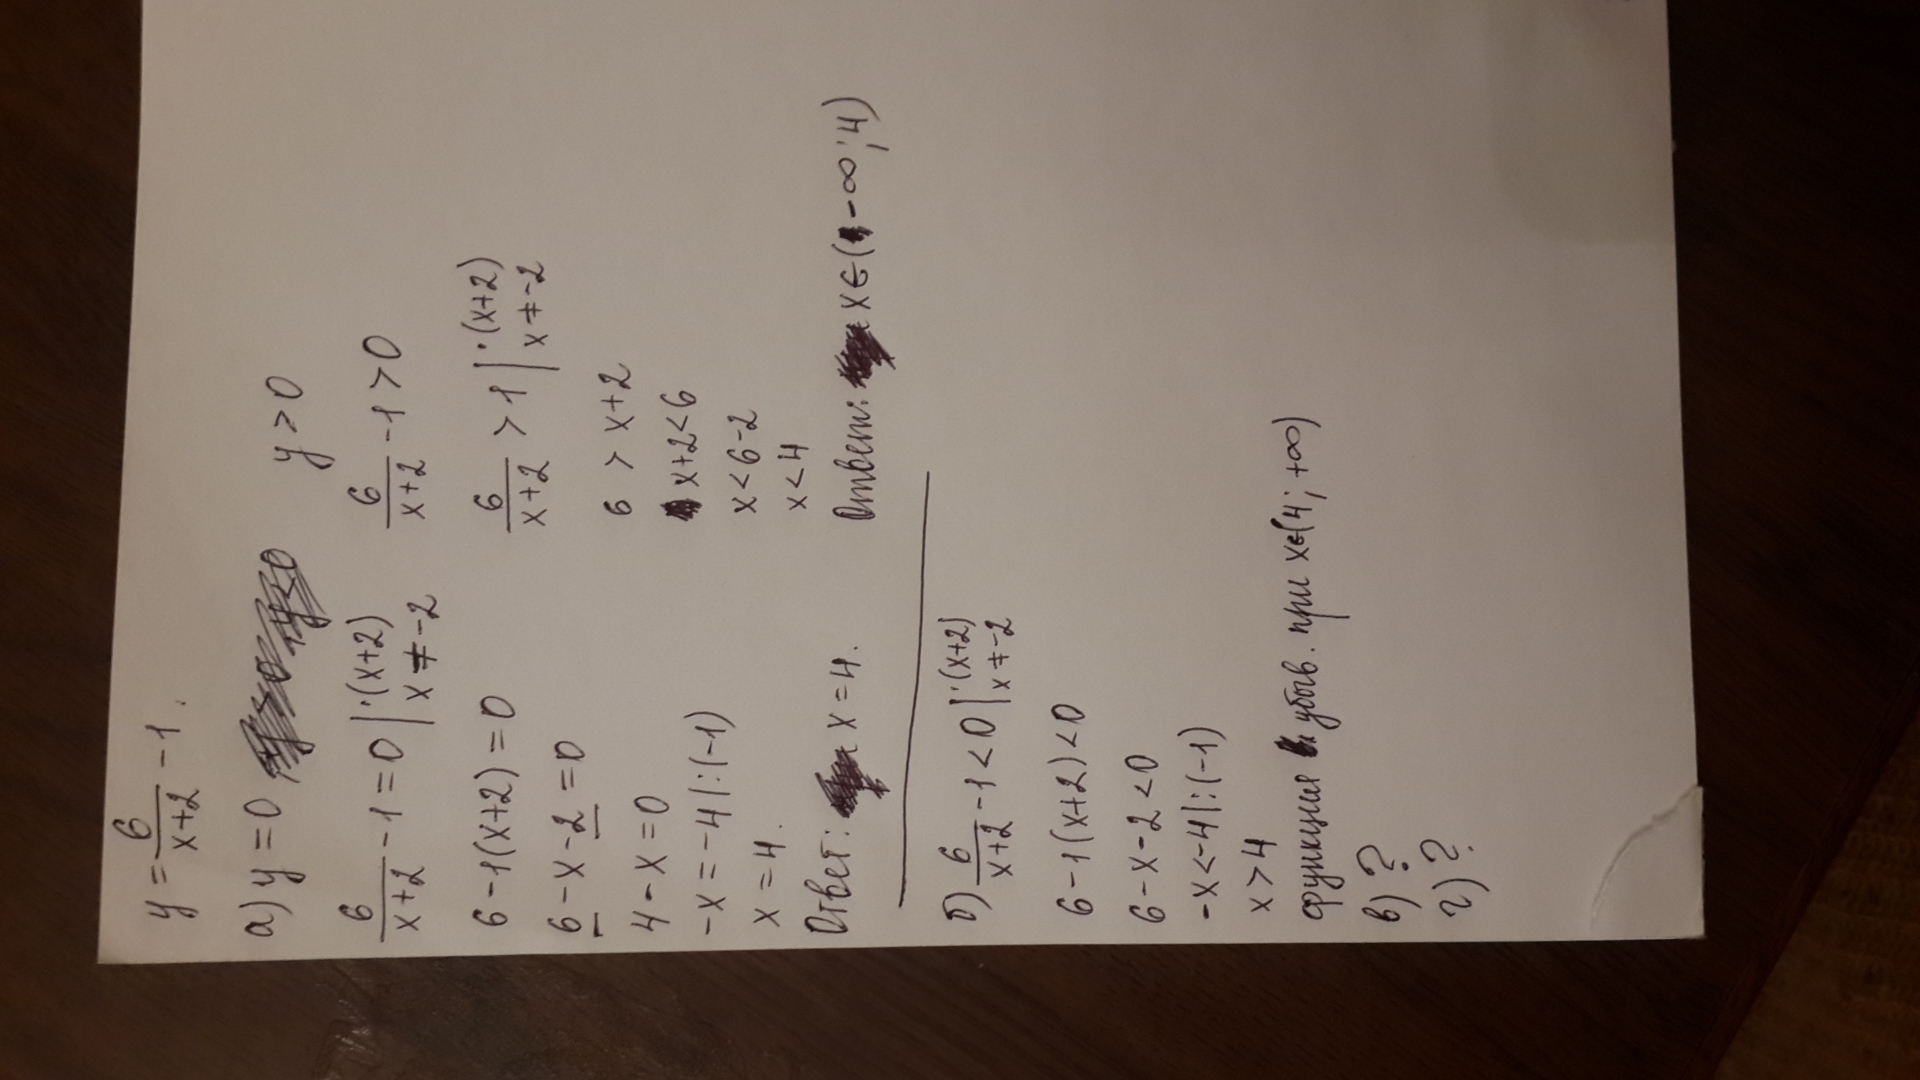 y = 6/(x+2) - 1.
а) y = 0
6/(x+2) - 1 = 0 | ·(x+2) x ≠ -2
6 - 1(x+2) = 0
6 - x - 2 = 0
4 - x = 0
-x = -4 | :(-1)
x = 4.
Ответ: x = 4.
y > 0
6/(x+2) - 1 > 0
6/(x+2) > 1 | ·(x+2) x ≠ -2
6 > x+2
x+2 < 6
x < 6-2
x < 4
Ответ: x ∈ (-∞; 4)
б) 6/(x+2) - 1 < 0 | ·(x+2) x ≠ -2
6 - 1(x+2) < 0
6 - x - 2 < 0
-x < -4 | :(-1)
x > 4
функция убыв. при x∈(4; +∞)
в) ?
г) ?